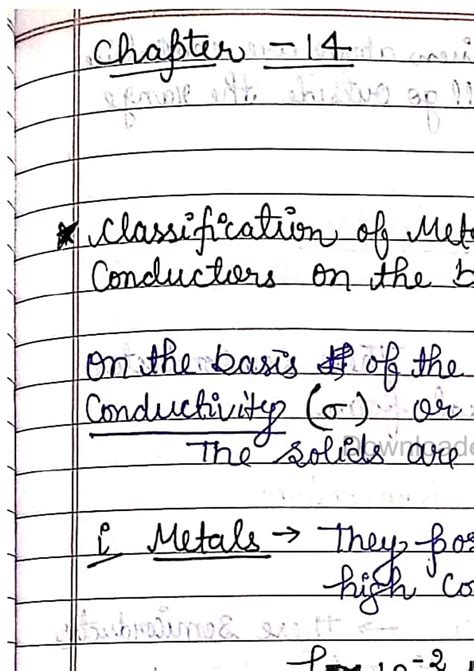 Chapter - 14
* Classification of Met
Conductors on the b
on the basis of the
Conductivity (σ) or
The solids are
Downloade
i Metals → They pos
high Co
10⁻²